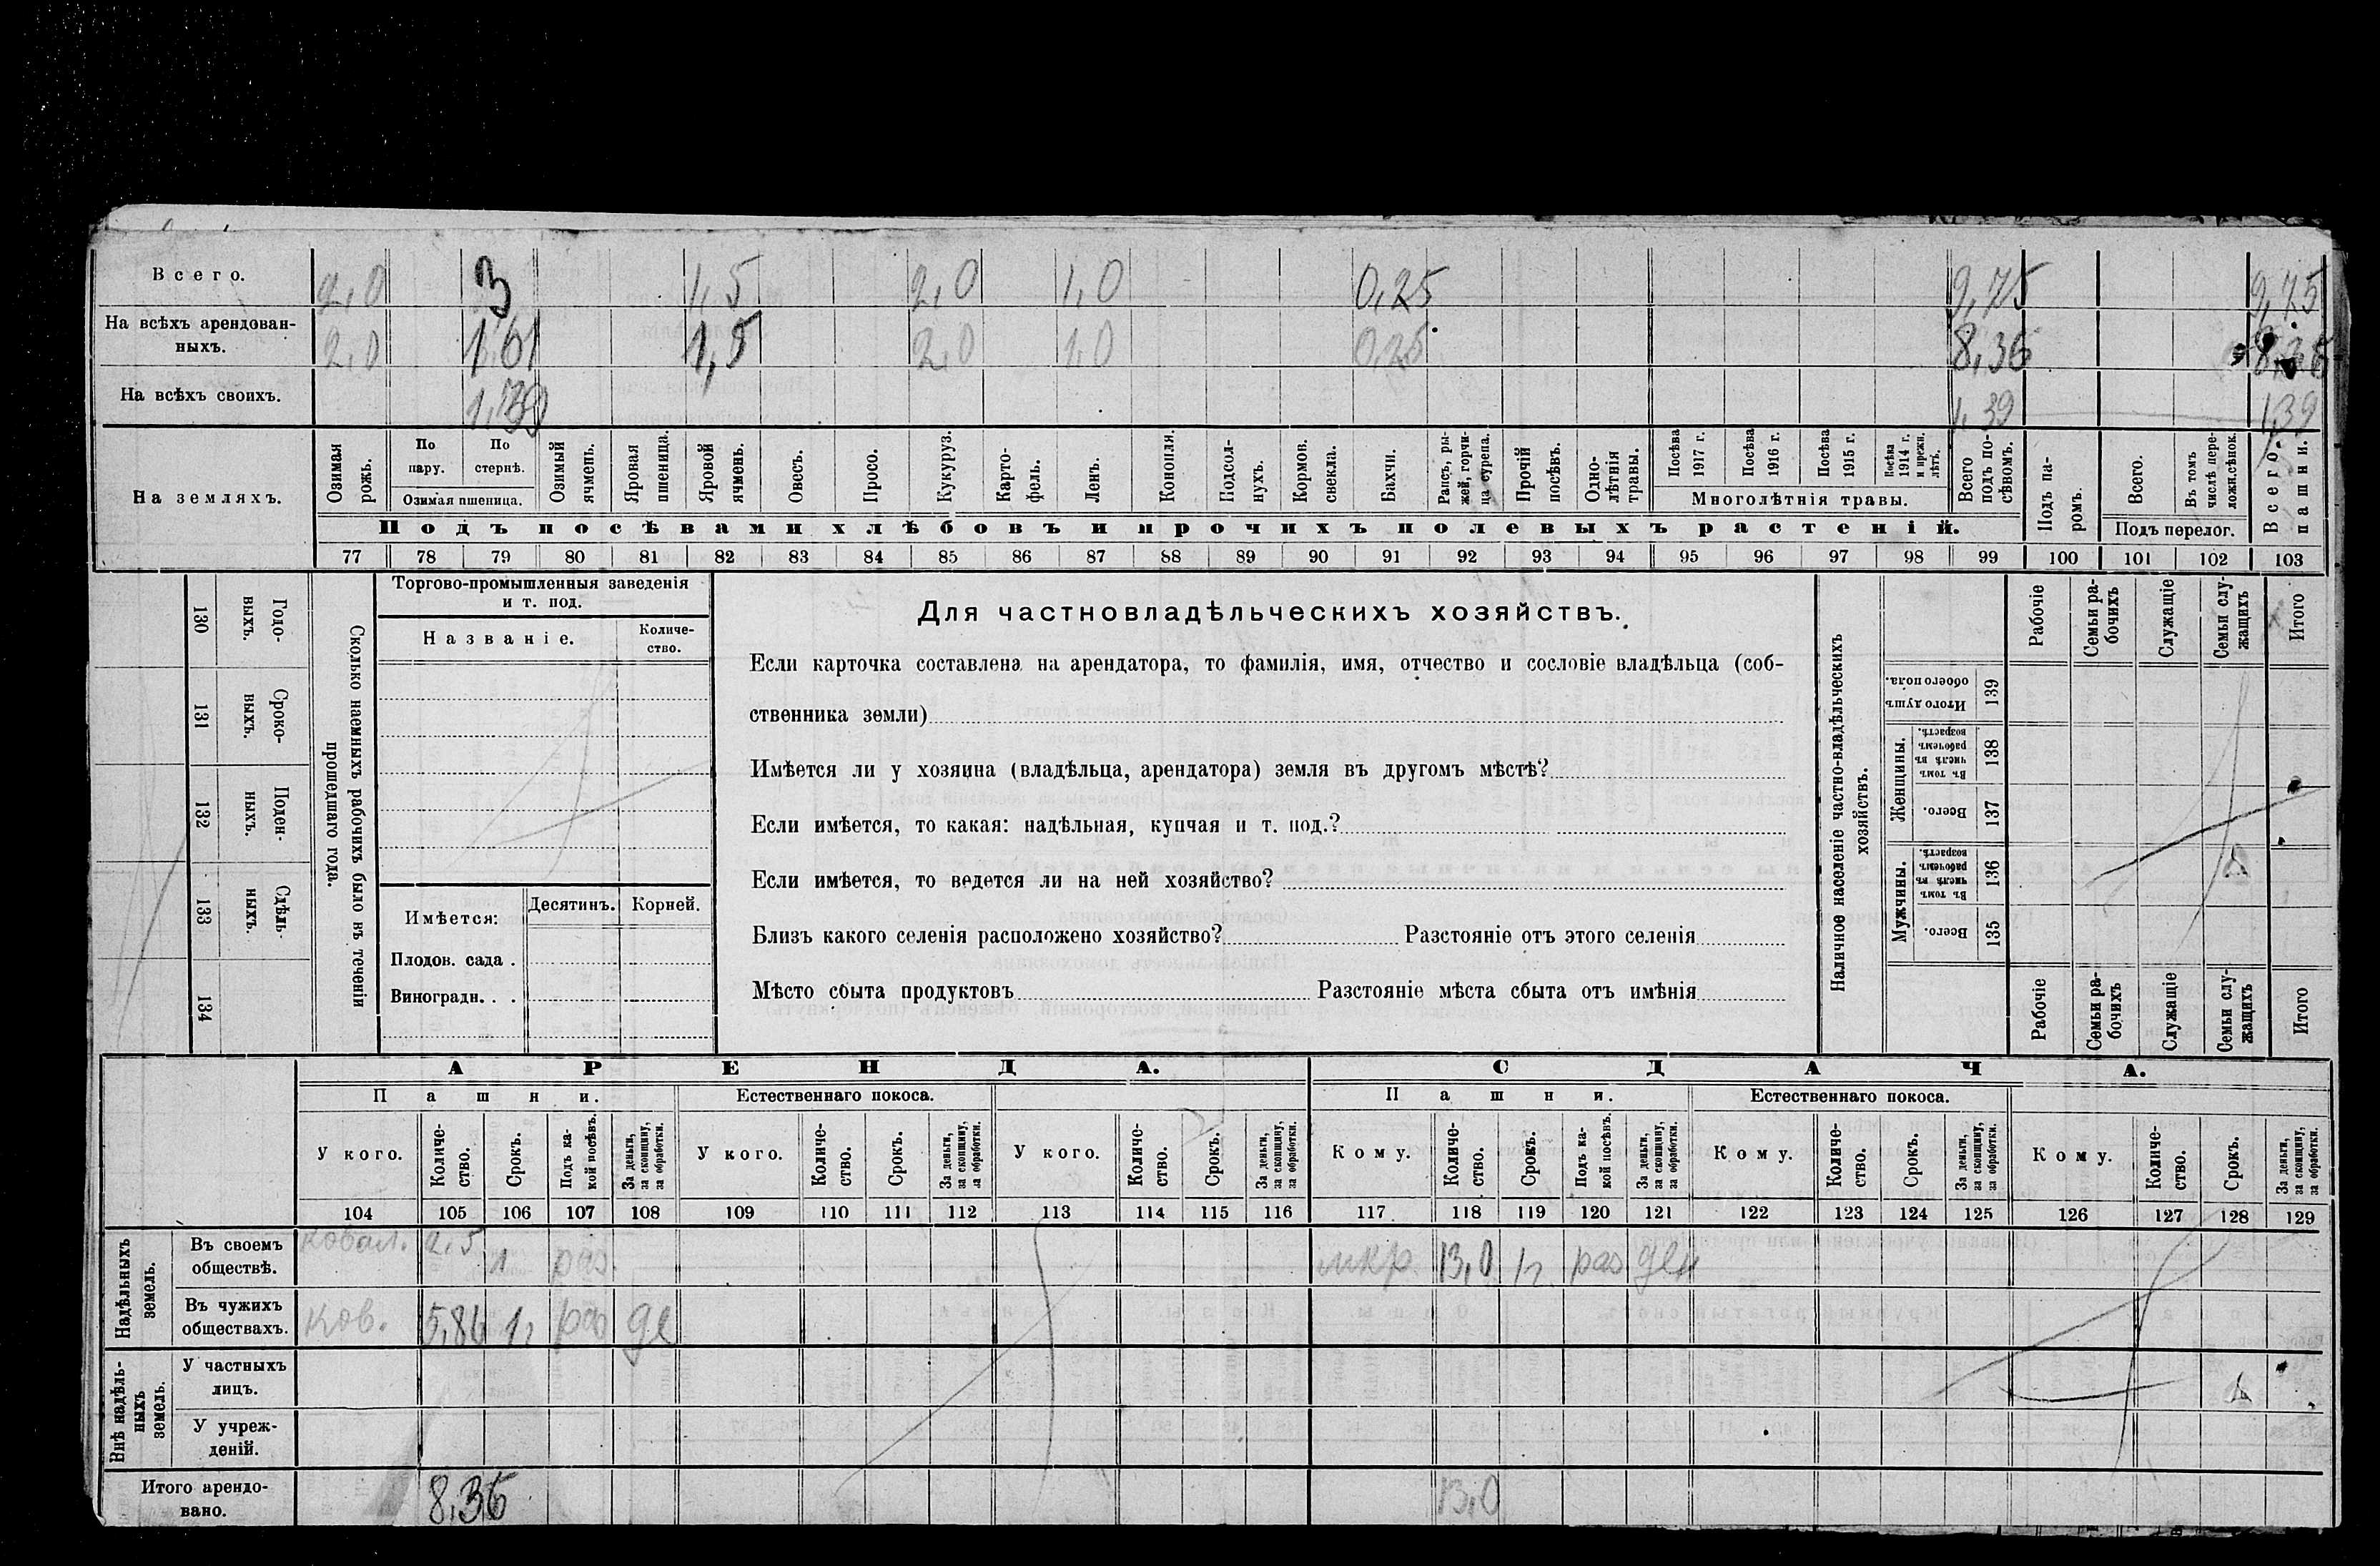 Всего. 2,0 3 1,5 2,0 1,0 0,25 9,75 9,75
На всѣхъ арендован-
ныхъ. 2,0 1,61 1,5 2,0 1,0 0,25 8,36 8,36
На всѣхъ своихъ. 1,39 1,39 1,39
На земляхъ.
Озимая рожь.
По пару.
По стернѣ.
Озимая пшеница.
Озимый ячмень.
Яровая пшеница.
Яровой ячмень.
Овесъ.
Просо.
Кукуруз.
Карто-
фель.
Ленъ.
Конопля.
Подсол-
нухъ.
Кормов. свекла.
Бахчи.
Рапсъ, ры-
жей, горчи-
ца сурепа.
Прочій посѣвъ.
Одно-
лѣтнія травы.
Посѣва 1917 г.
Посѣва 1916 г.
Посѣва 1915 г.
Посѣва 1914 г. и прежн. лѣтъ.
Многолѣтнія травы.
Всего подъ по-
сѣвомъ.
Подъ па-
ромъ.
Всего.
Въ томъ числѣ пере-
ложн.сѣнок.
Подъ перелог.
Всего пашни.
Подъ посѣвами хлѣбовъ и прочихъ полевыхъ растеній.
77 78 79 80 81 82 83 84 85 86 87 88 89 90 91 92 93 94 95 96 97 98 99 100 101 102 103
130 Годо-
выхъ.
131 Сроко-
ныхъ.
132 Поден-
ныхъ.
133 Сдѣль-
ныхъ.
134
Сколько наемныхъ рабочихъ было въ теченіи
прошедшаго года.
Торгово-промышленныя заведенія
и т. под.
Названіе.
Количе-
ство.
Имѣется:
Десятинъ. Корней.
Плодов. сада .
Виноградн. . .
Для частновладѣльческихъ хозяйствъ.
Если карточка составлена на арендатора, то фамилія, имя, отчество и сословіе владѣльца (соб-
ственника земли)
Имѣется ли у хозяина (владѣльца, арендатора) земля въ другомъ мѣстѣ?
Если имѣется, то какая: надѣльная, купчая и т. под.?
Если имѣется, то ведется ли на ней хозяйство?
Близъ какого селенія расположено хозяйство? Разстояніе отъ этого селенія
Мѣсто сбыта продуктовъ Разстояніе мѣста сбыта отъ имѣнія
Наличное населеніе частно-владѣльческихъ
хозяйствъ.
Рабочіе
Семьи ра-
бочихъ
Служащіе
Семьи слу-
жащихъ
Итого
Итого душъ обоего пола. 139
Женщины.
Въ томъ числѣ въ рабочемъ возрастѣ. 138
Всего. 137
Мужчины.
Въ томъ числѣ въ рабочемъ возрастѣ. 136
Всего. 135
Рабочіе
Семьи ра-
бочихъ
Служащіе
Семьи слу-
жащихъ
Итого
АРЕНДА. СДАЧА.
Пашни. Естественнаго покоса. Пашни. Естественнаго покоса.
У кого.
Количе-
ство.
Срокъ.
Подъ ка-
кой посѣвъ.
За деньги, за скопщину, за обработки.
У кого.
Количе-
ство.
Срокъ.
За деньги, за скопщину, за обработки.
У кого.
Количе-
ство.
Срокъ.
За деньги, за скопщину, за обработки.
Кому.
Количе-
ство.
Срокъ.
Подъ ка-
кой посѣвъ.
За деньги, за скопщину, за обработки.
Кому.
Количе-
ство.
Срокъ.
За деньги, за скопщину, за обработки.
Кому.
Количе-
ство.
Срокъ.
За деньги, за скопщину, за обработки.
104 105 106 107 108 109 110 111 112 113 114 115 116 117 118 119 120 121 122 123 124 125 126 127 128 129
Надѣльныхъ земель.
Въ своемъ
обществѣ. ковал. 2,5 1 раз. 13,0 1г. раз ден
Въ чужихъ
обществахъ. ков. 5,86 1г. раз де
Внѣ надѣль-
ныхъ земель.
У частныхъ
лицъ.
У учреж-
деній.
Итого арендо-
вано. 8,36 13,0